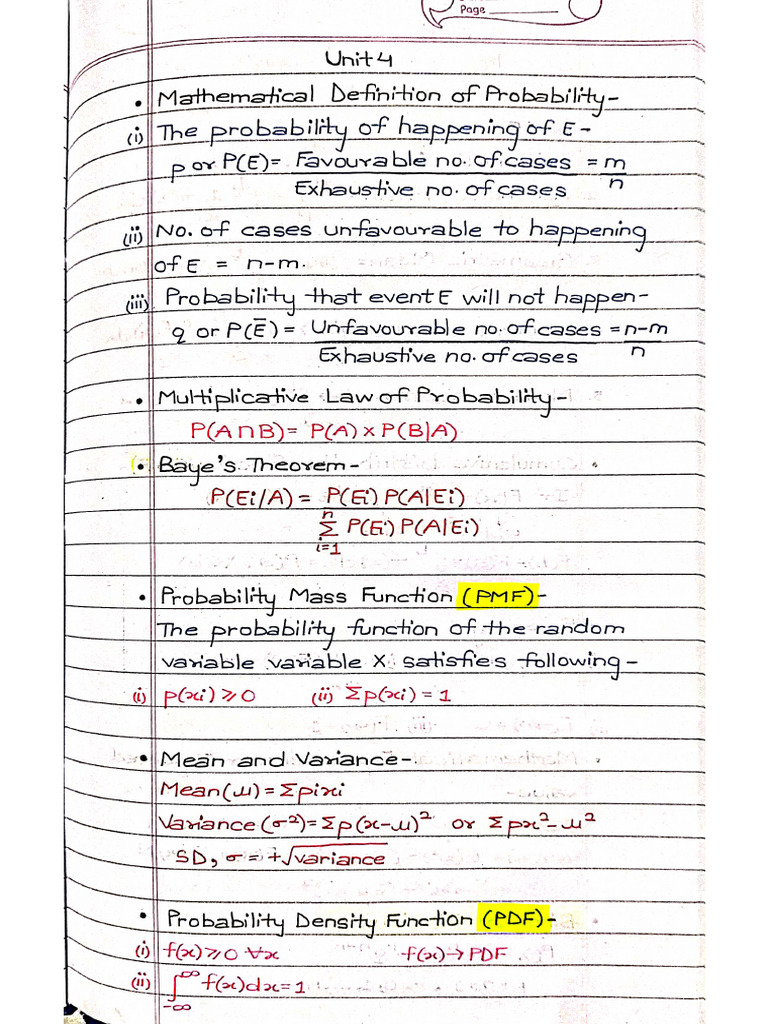 Page
Unit 4
• Mathematical Definition of Probability-
(i) The probability of happening of E -
p or P(E) = Favourable no. of cases = m
Exhaustive no. of cases n
(ii) No. of cases unfavourable to happening
of E = n-m.
(iii) Probability that event E will not happen-
q or P(Ē) = Unfavourable no. of cases = n-m
Exhaustive no. of cases n
• Multiplicative Law of Probability-
P(A∩B) = P(A) × P(B|A)
• Baye's Theorem-
P(Ei/A) = P(Ei) P(A|Ei)
n
Σ P(Ei) P(A|Ei)
i=1
• Probability Mass Function (PMF)-
The probability function of the random
variable variable X satisfies following-
(i) p(xi) ≥ 0 (ii) Σp(xi) = 1
• Mean and Variance-
Mean(μ) = Σpixi
Variance (σ²) = Σp(x-μ)² or Σpx²-μ²
SD, σ = +√variance
• Probability Density Function (PDF)-
(i) f(x) ≥ 0 ∀x f(x) → PDF
(ii) ∫₋∞^∞ f(x)dx = 1